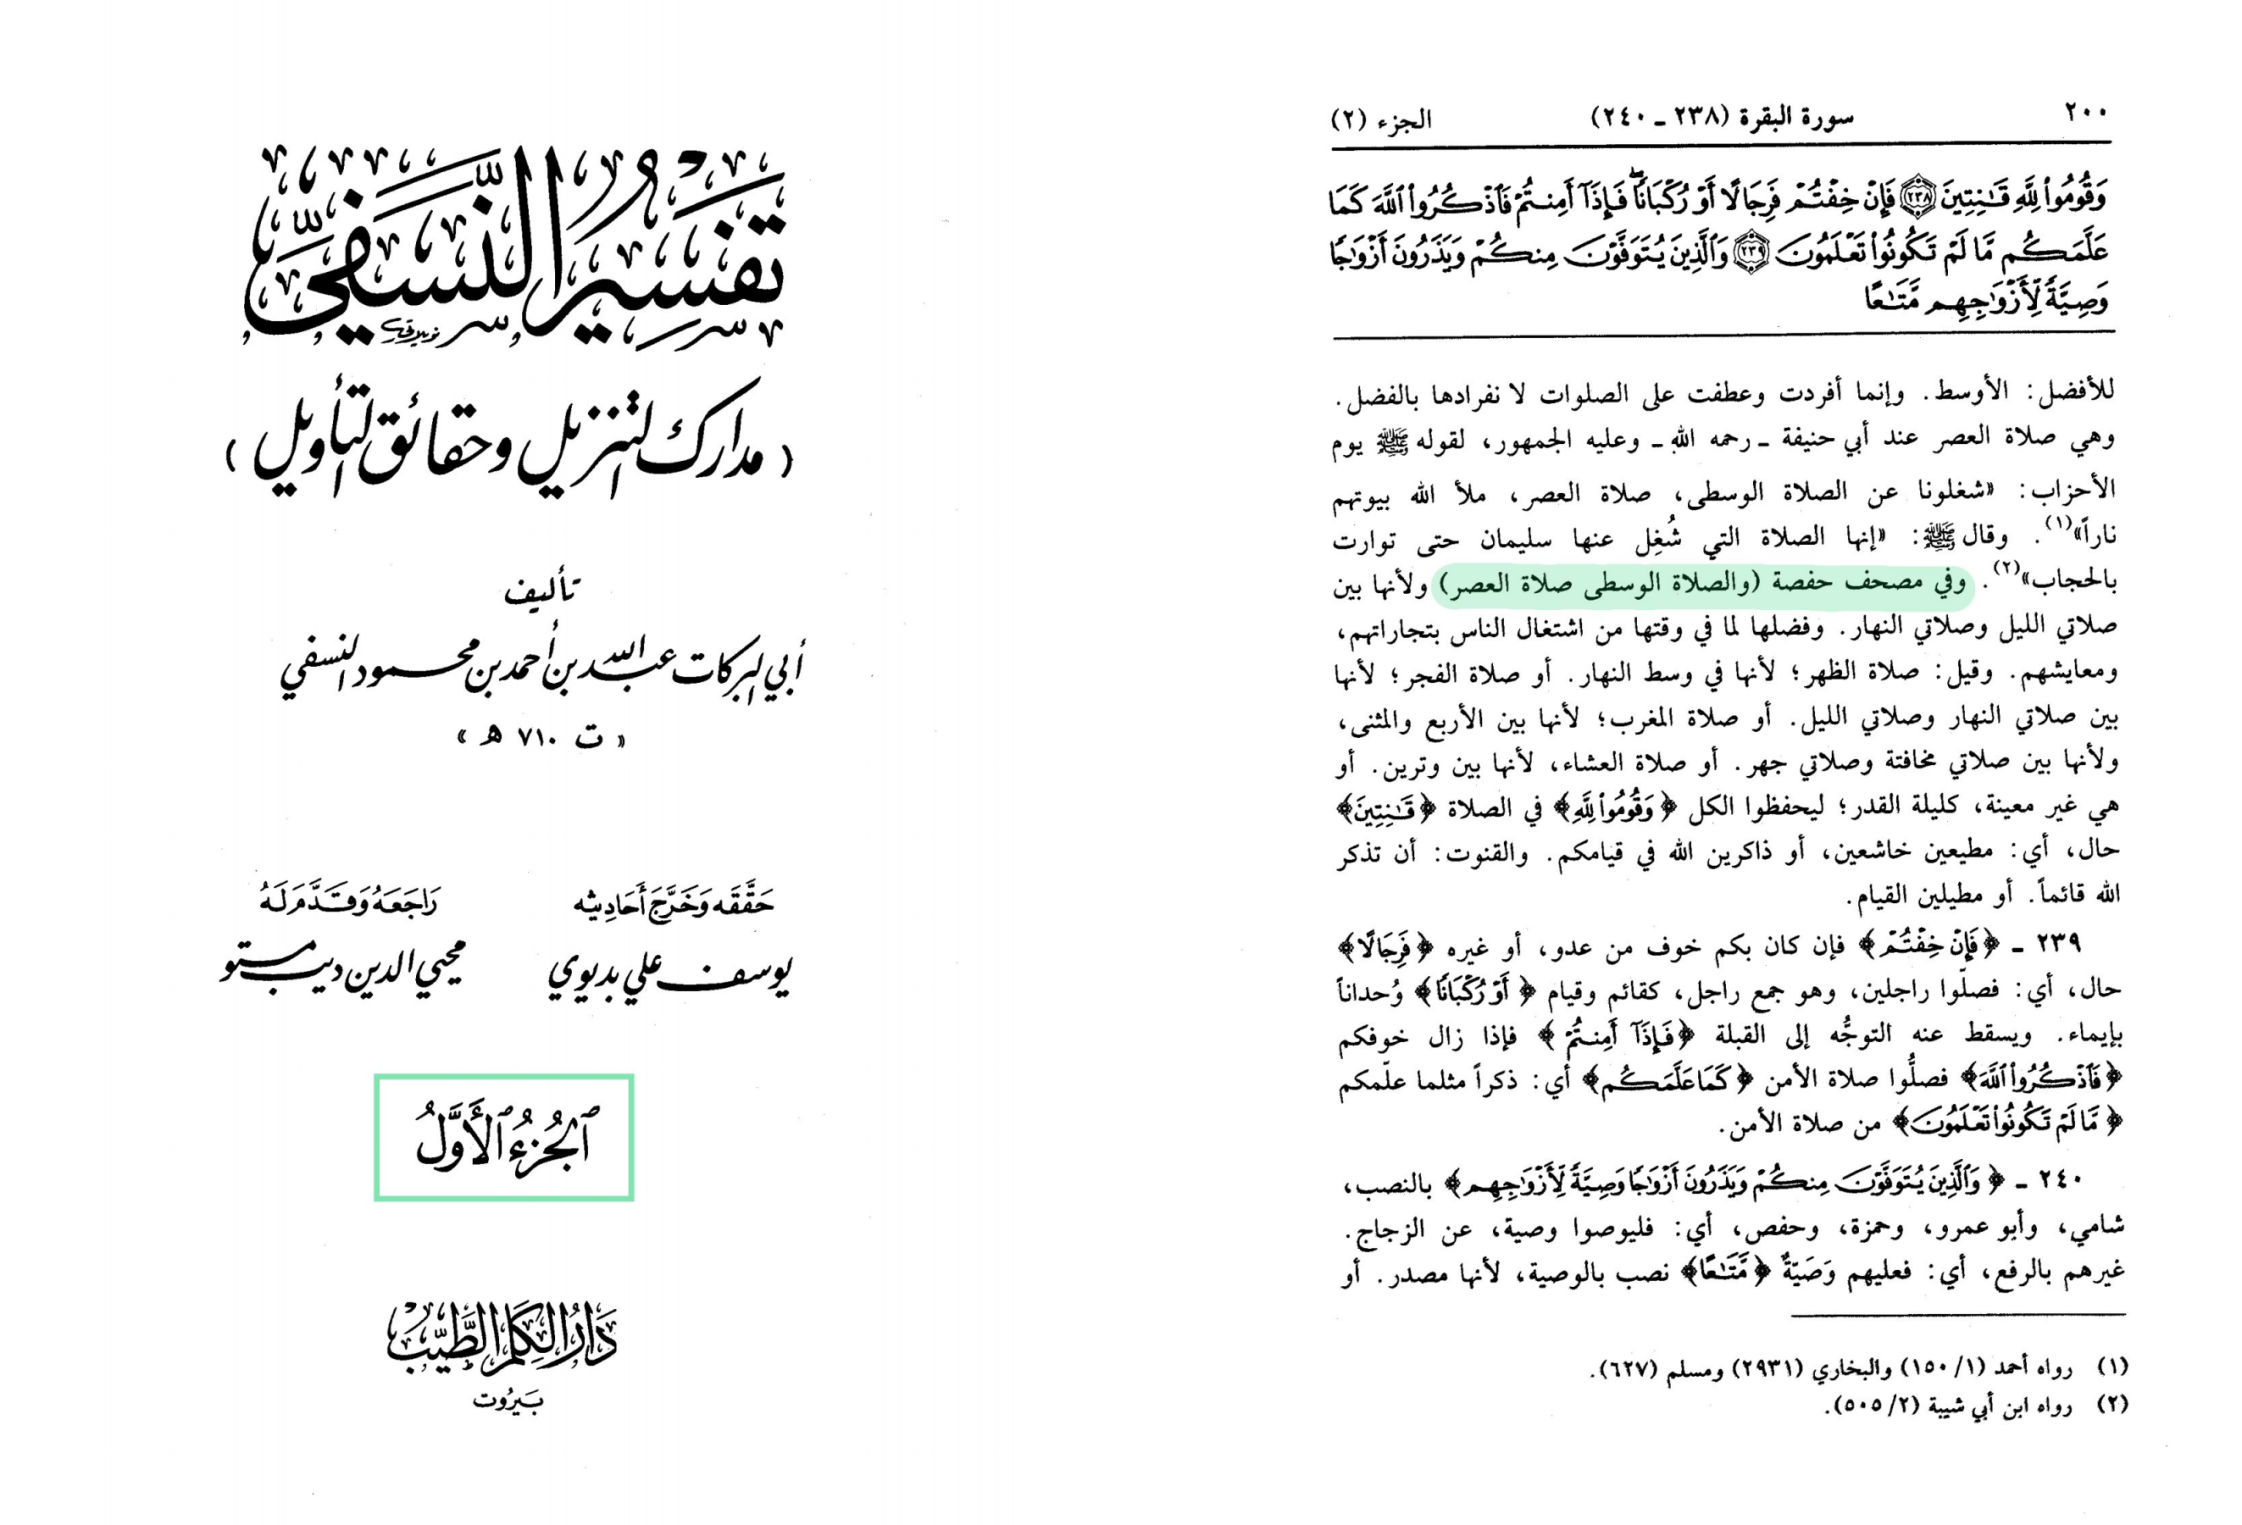 تَفْسِيرُ النَّسَفِيّ
(مدارك التنزيل وحقائق التأويل)
تأليف
أبي البركات عبد الله بن أحمد بن محمود النسفي
« ت ٧١٠ هـ »
حَقَّقَه وَخَرَّجَ أَحَادِيثه
يوسف علي بديوي
رَاجَعَهُ وَقَدَّمَ لَهُ
محيي الدين ديب مستو
اَلجُزءُ الأَوَّلُ
دَارُ الكَلِمِ الطَّيِّبِ
بَيرُوت
٢٠٠ سورة البقرة (٢٣٨ ـ ٢٤٠) الجزء (٢)
وَقُومُواْ لِلَّهِ قَـٰنِتِينَ ٢٣٨ فَإِنْ خِفْتُمْ فَرِجَالًا أَوْ رُكْبَانًاۖ فَإِذَآ أَمِنتُمْ فَٱذْكُرُواْ ٱللَّهَ كَمَا
عَلَّمَكُم مَّا لَمْ تَكُونُواْ تَعْلَمُونَ ٢٣٩ وَٱلَّذِينَ يُتَوَفَّوْنَ مِنكُمْ وَيَذَرُونَ أَزْوَٰجًا
وَصِيَّةً لِّأَزْوَٰجِهِم مَّتَـٰعًا
للأفضل: الأوسط. وإنما أفردت وعطفت على الصلوات لا نفرادها بالفضل.
وهي صلاة العصر عند أبي حنيفة ـ رحمه الله ـ وعليه الجمهور، لقوله ﷺ يوم
الأحزاب: «شغلونا عن الصلاة الوسطى، صلاة العصر، ملأ الله بيوتهم
ناراً»(١). وقال ﷺ: «إنها الصلاة التي شُغِل عنها سليمان حتى توارت
بالحجاب»(٢). وفي مصحف حفصة (والصلاة الوسطى صلاة العصر) ولأنها بين
صلاتي الليل وصلاتي النهار. وفضلها لما في وقتها من اشتغال الناس بتجاراتهم،
ومعايشهم. وقيل: صلاة الظهر؛ لأنها في وسط النهار. أو صلاة الفجر؛ لأنها
بين صلاتي النهار وصلاتي الليل. أو صلاة المغرب؛ لأنها بين الأربع والمثنى،
ولأنها بين صلاتي مخافتة وصلاتي جهر. أو صلاة العشاء، لأنها بين وترين. أو
هي غير معينة، كليلة القدر؛ ليحفظوا الكل ﴿وَقُومُواْ لِلَّهِ﴾ في الصلاة ﴿قَـٰنِتِينَ﴾
حال، أي: مطيعين خاشعين، أو ذاكرين الله في قيامكم. والقنوت: أن تذكر
الله قائماً. أو مطيلين القيام.
٢٣٩ ـ ﴿فَإِنْ خِفْتُمْ﴾ فإن كان بكم خوف من عدو، أو غيره ﴿فَرِجَالًا﴾
حال، أي: فصلّوا راجلين، وهو جمع راجل، كقائم وقيام ﴿أَوْ رُكْبَانًا﴾ وُحداناً
بإيماء. ويسقط عنه التوجُّه إلى القبلة ﴿فَإِذَآ أَمِنتُمْ﴾ فإذا زال خوفكم
﴿فَٱذْكُرُواْ ٱللَّهَ﴾ فصلُّوا صلاة الأمن ﴿كَمَا عَلَّمَكُم﴾ أي: ذكراً مثلما علّمكم
﴿مَّا لَمْ تَكُونُواْ تَعْلَمُونَ﴾ من صلاة الأمن.
٢٤٠ ـ ﴿وَٱلَّذِينَ يُتَوَفَّوْنَ مِنكُمْ وَيَذَرُونَ أَزْوَٰجًا وَصِيَّةً لِّأَزْوَٰجِهِم﴾ بالنصب،
شامي، وأبو عمرو، وحمزة، وحفص، أي: فليوصوا وصية، عن الزجاج.
غيرهم بالرفع، أي: فعليهم وَصَيّةٌ ﴿مَّتَـٰعًا﴾ نصب بالوصية، لأنها مصدر. أو
(١) رواه أحمد (١/ ١٥٠) والبخاري (٢٩٣١) ومسلم (٦٢٧).
(٢) رواه ابن أبي شيبة (٢/ ٥٠٥).